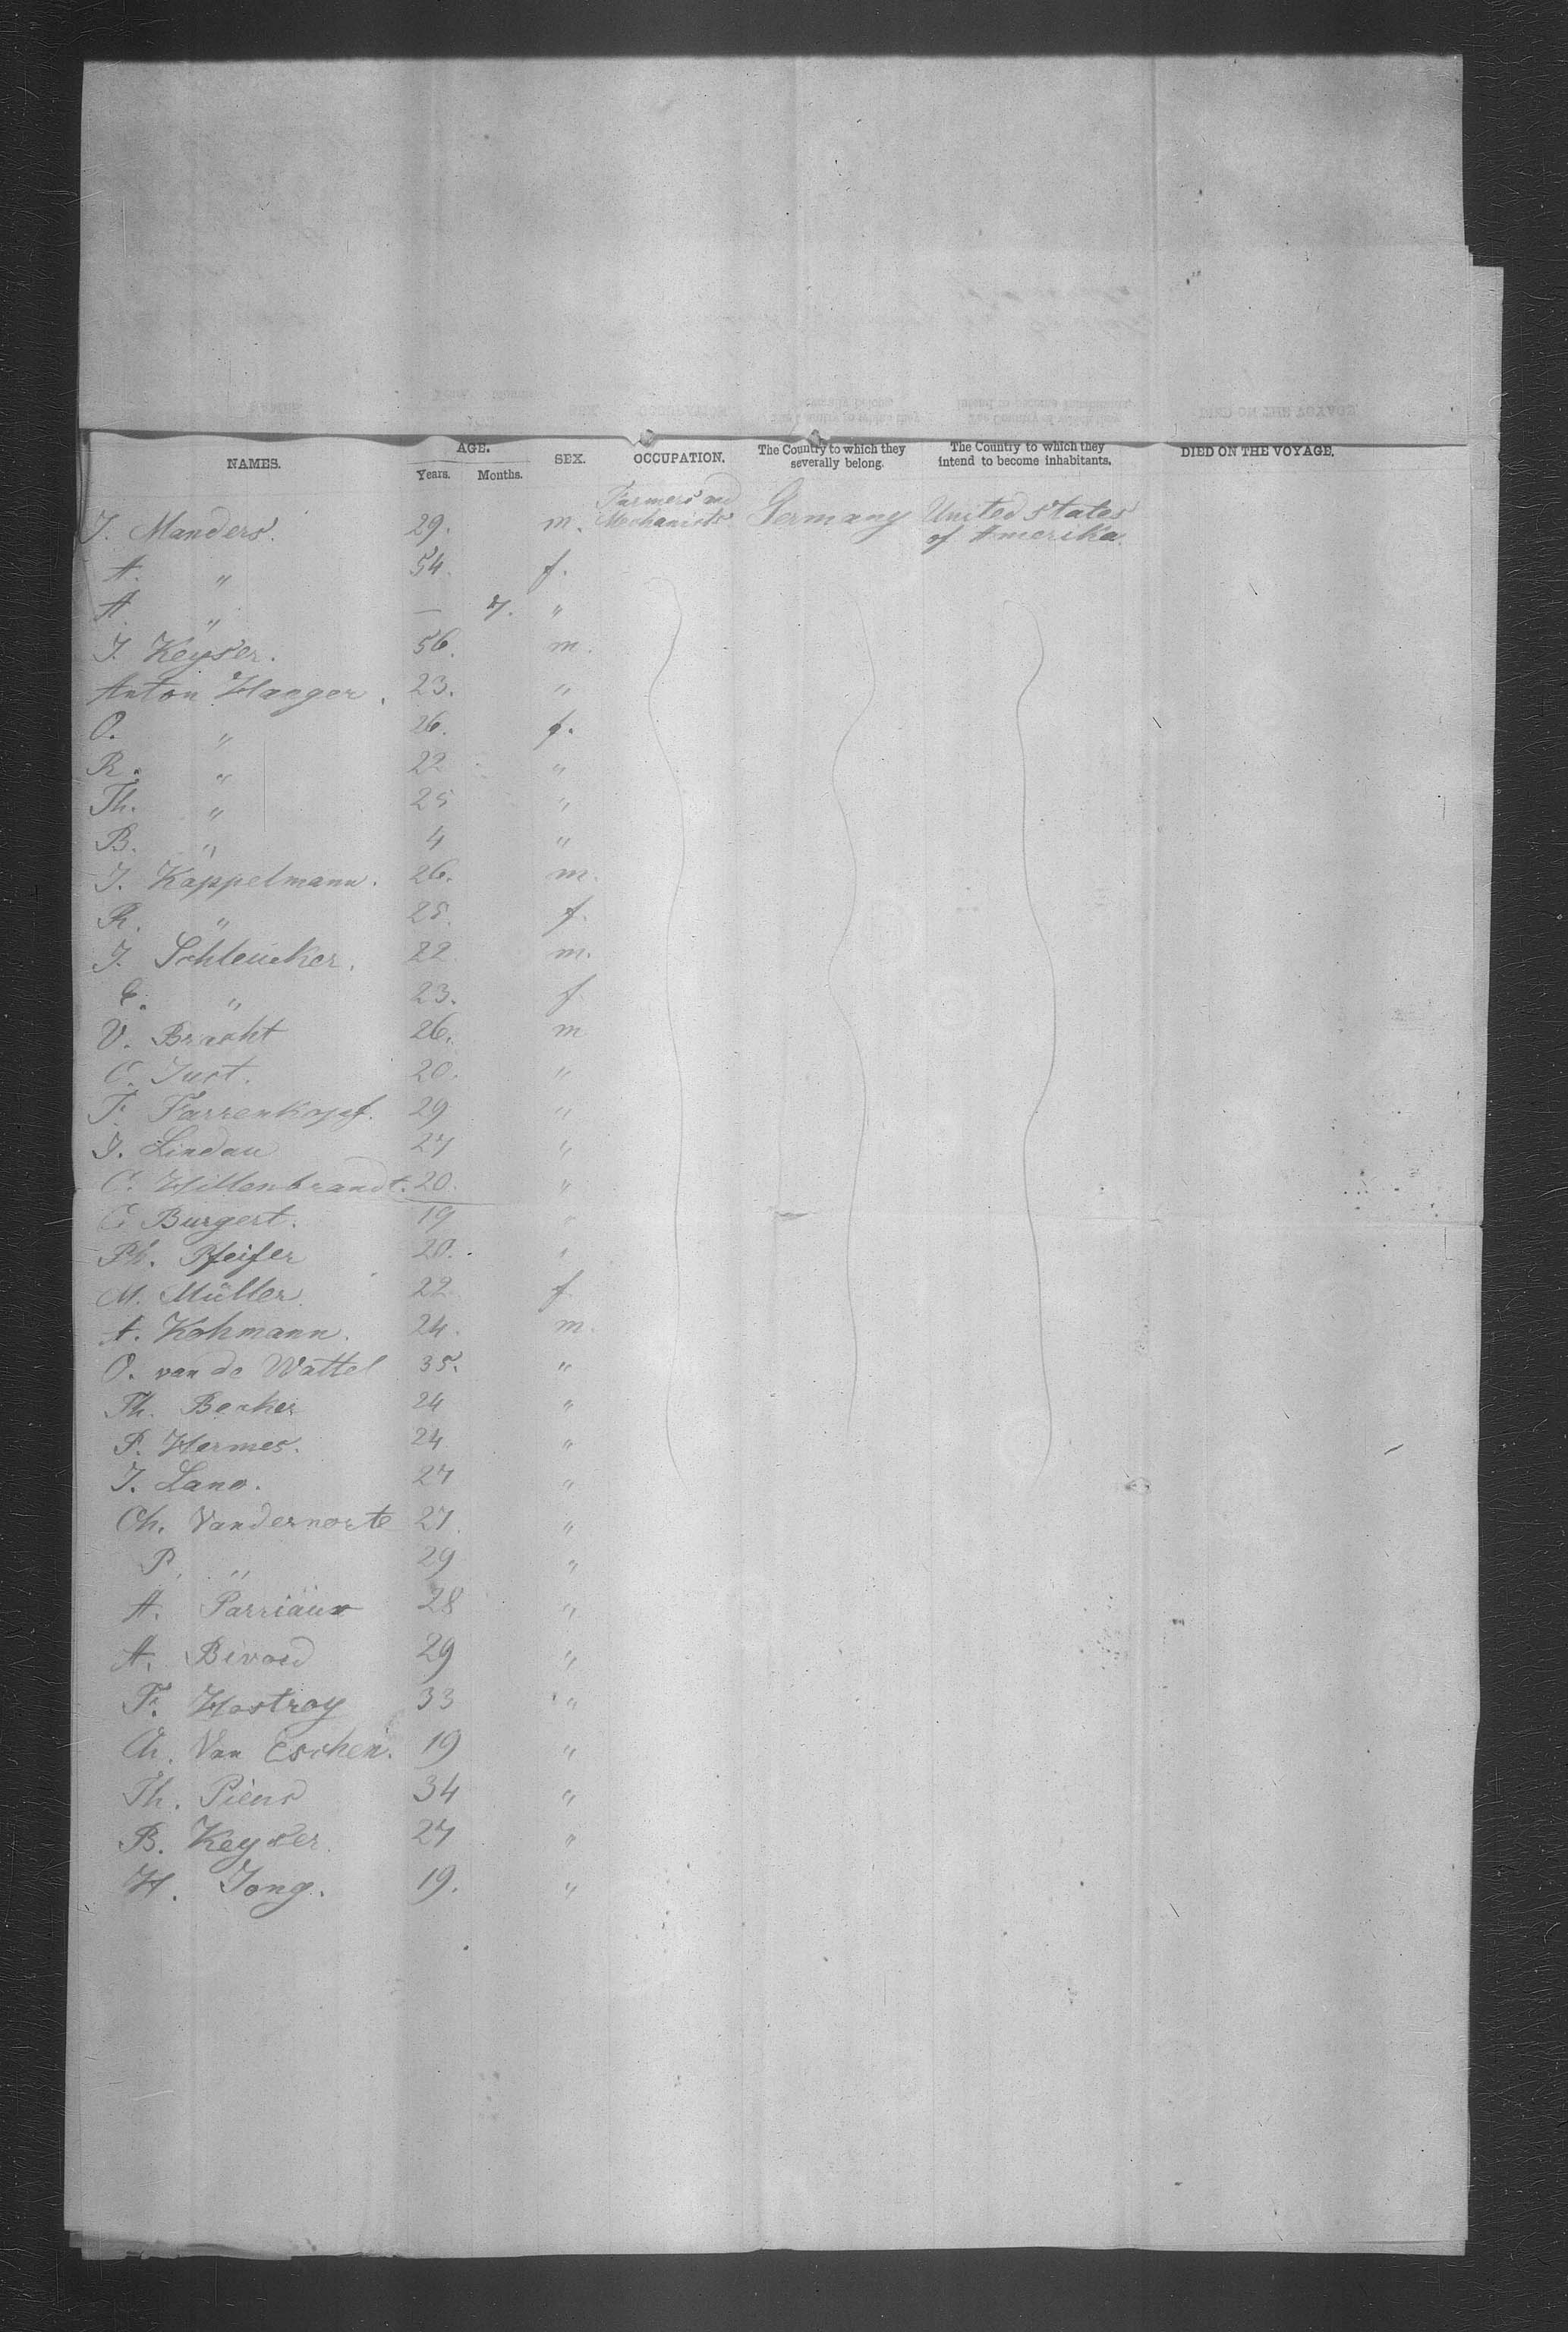 NAMES. AGE. Years. Months. SEX. OCCUPATION. The Country to which they severally belong. The Country to which they intend to become inhabitants. DIED ON THE VOYAGE.
J. Manders. 29. m. Farmers and Mechanists Germany United States of Amerika.
A. " 54. f.
A. " — 7. "
J. Keyser. 56. m.
Anton Haeger. 23. "
O. " 26. f.
R. " 22 "
Th. " 25 "
B. " 4 "
J. Kappelmann. 26. m.
R. " 25. f.
J. Schleucker. 22 m.
C. " 23. f
V. Bracht 26. m
C. Just. 20. "
F. Farrenkopf. 29 "
J. Lindau 27 "
C. Hillenbrandt. 20. "
C. Burgert. 19 "
Ph. Pfeifer 20. "
M. Müller 22 f
A. Kohmann. 24. m.
O. van de Wattel 35. "
Th. Becker 24 "
P. Hermes. 24 "
J. 27 "
Ch. Vandernorte 27. "
P. " 29 "
A. Parriaux 28 "
A. 29 "
F. Hostroy 33 "
Van Eschen. 19 "
Th. Piens 34 "
B. Keyser. 27 "
H. Jong. 19. "